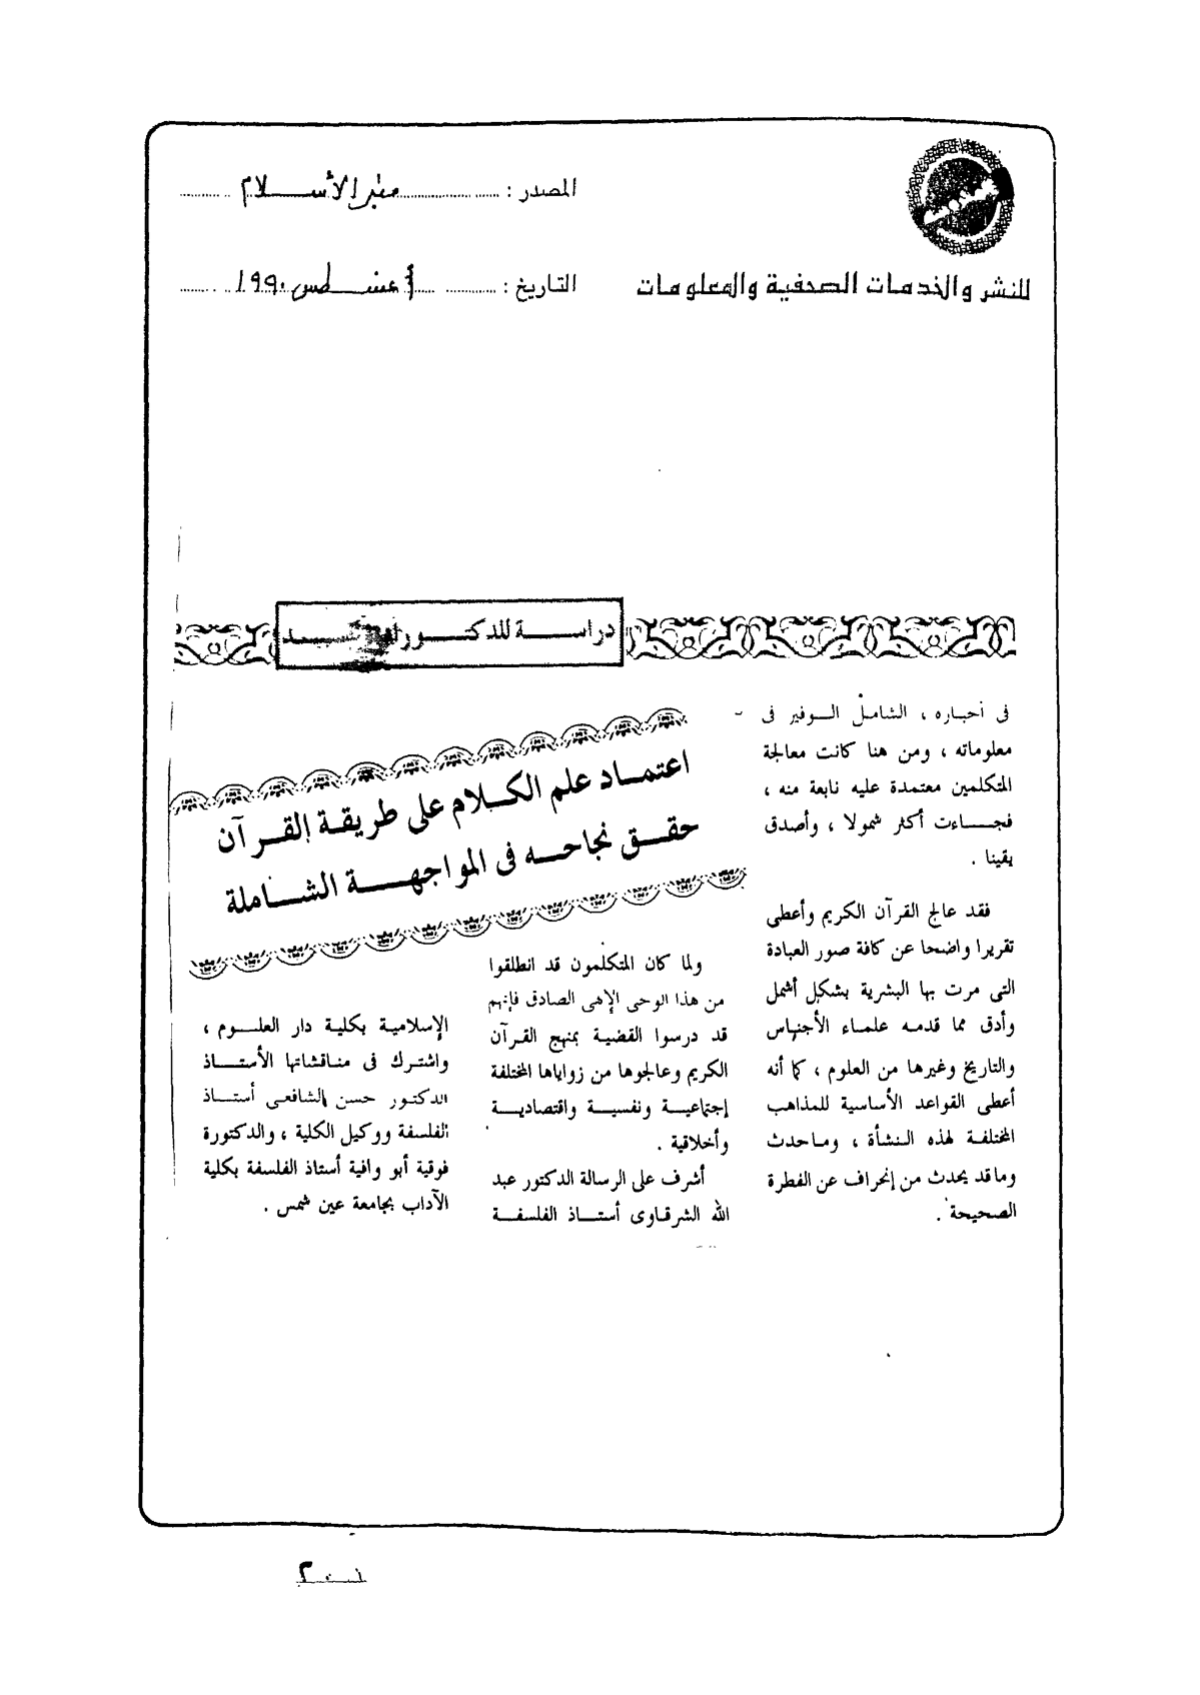 المصدر : منبر الأسلام
للنشر والخدمات الصحفية والمعلومات
التاريخ : أغسطس ١٩٩٠
دراسة للدكتور السيد
فى أخباره ، الشامل الوفير فى
معلوماته ، ومن هنا كانت معالجة
المتكلمين معتمدة عليه نابعة منه ،
فجاءت أكثر شمولا ، وأصدق
يقينا .
فقد عالج القرآن الكريم وأعطى
تقريرا واضحا عن كافة صور العبادة
التى مرت بها البشرية بشكل أشمل
وأدق مما قدمه علماء الأجناس
والتاريخ وغيرها من العلوم ، كما أنه
أعطى القواعد الأساسية للمذاهب
المختلفة لهذه النشأة ، وماحدث
وماقد يحدث من إنحراف عن الفطرة
الصحيحة .
اعتماد علم الكلام على طريقة القرآن
حقق نجاحه فى المواجهة الشاملة
ولما كان المتكلمون قد انطلقوا
من هذا الوحى الإهى الصادق فإنهم
قد درسوا القضية بمنهج القرآن
الكريم وعالجوها من زواياها المختلفة
إجتماعية ونفسية واقتصادية
وأخلاقية .
أشرف على الرسالة الدكتور عبد
الله الشرقاوى أستاذ الفلسفة
الإسلامية بكلية دار العلوم ،
واشترك فى مناقشاتها الأستاذ
الدكتور حسن الشافعى أستاذ
الفلسفة ووكيل الكلية ، والدكتورة
فوقية أبو وافية أستاذ الفلسفة بكلية
الآداب بجامعة عين شمس .
٢٠١